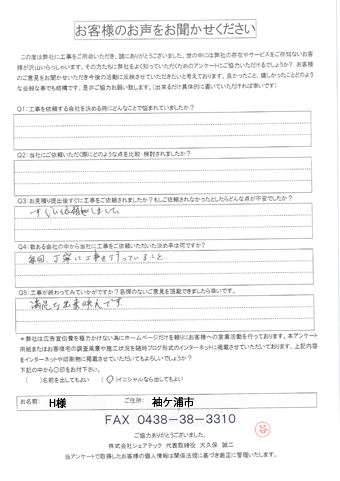 お客様のお声をお聞かせください
この度は弊社に工事をご用命いただき、誠にありがとうございました。世の中には弊社の存在やサービスをご存知ないお客
様が沢山いらっしゃいます。その方たちに弊社をよく知っていただくためのアンケートにご協力いただけるでしょうか？ お客様
のご意見をお聞かせいただき今後の活動に反映させていただきたいと考えております。良かったこと、嬉しかったことどのよう
な些細な事でも結構です。是非ご協力お願い致します。（出来るだけ具体的に書いていただければ幸いです）
Q1：工事を依頼する会社を決める時にどんなことで悩まれていましたか？
Q2：当社にご依頼いただく際にどのような点を比較・検討されましたか？
Q3：お見積り提出後すぐに工事をご依頼されましたか？もしご依頼されなかったとしたらどんな点が不安でしたか？
すぐに依頼しました
Q4：数ある会社の中から当社に工事をご依頼いただいた決め手は何ですか？
毎回、丁寧に工事を行っていること。
Q5：工事が終わってみていかがですか？忌憚のないご意見を頂戴できましたら幸いです。
満足な出来映えです。
＊弊社は広告宣伝費を極力かけない為にホームページだけを頼りにお客様への営業活動を行っております。本アンケート
用紙またはお客様宅の調査風景や施工状況を随時ブログ形式のインターネットに掲載させていただいております。上記内容
をインターネットや印刷物に掲載させていただいてもよろしいでしょうか？
下記の中から〇印をお付下さい。
（ ）名前を出してもよい （〇）イニシャルなら出してもよい
お名前： H様 ご住所： 袖ケ浦市
FAX 0438-38-3310
谷
ご協力ありがとうございました。
株式会社シェアテック 代表取締役 大久保 誠二
当アンケートで取得したお客様の個人情報は関係法規に基づき厳正に管理いたします。